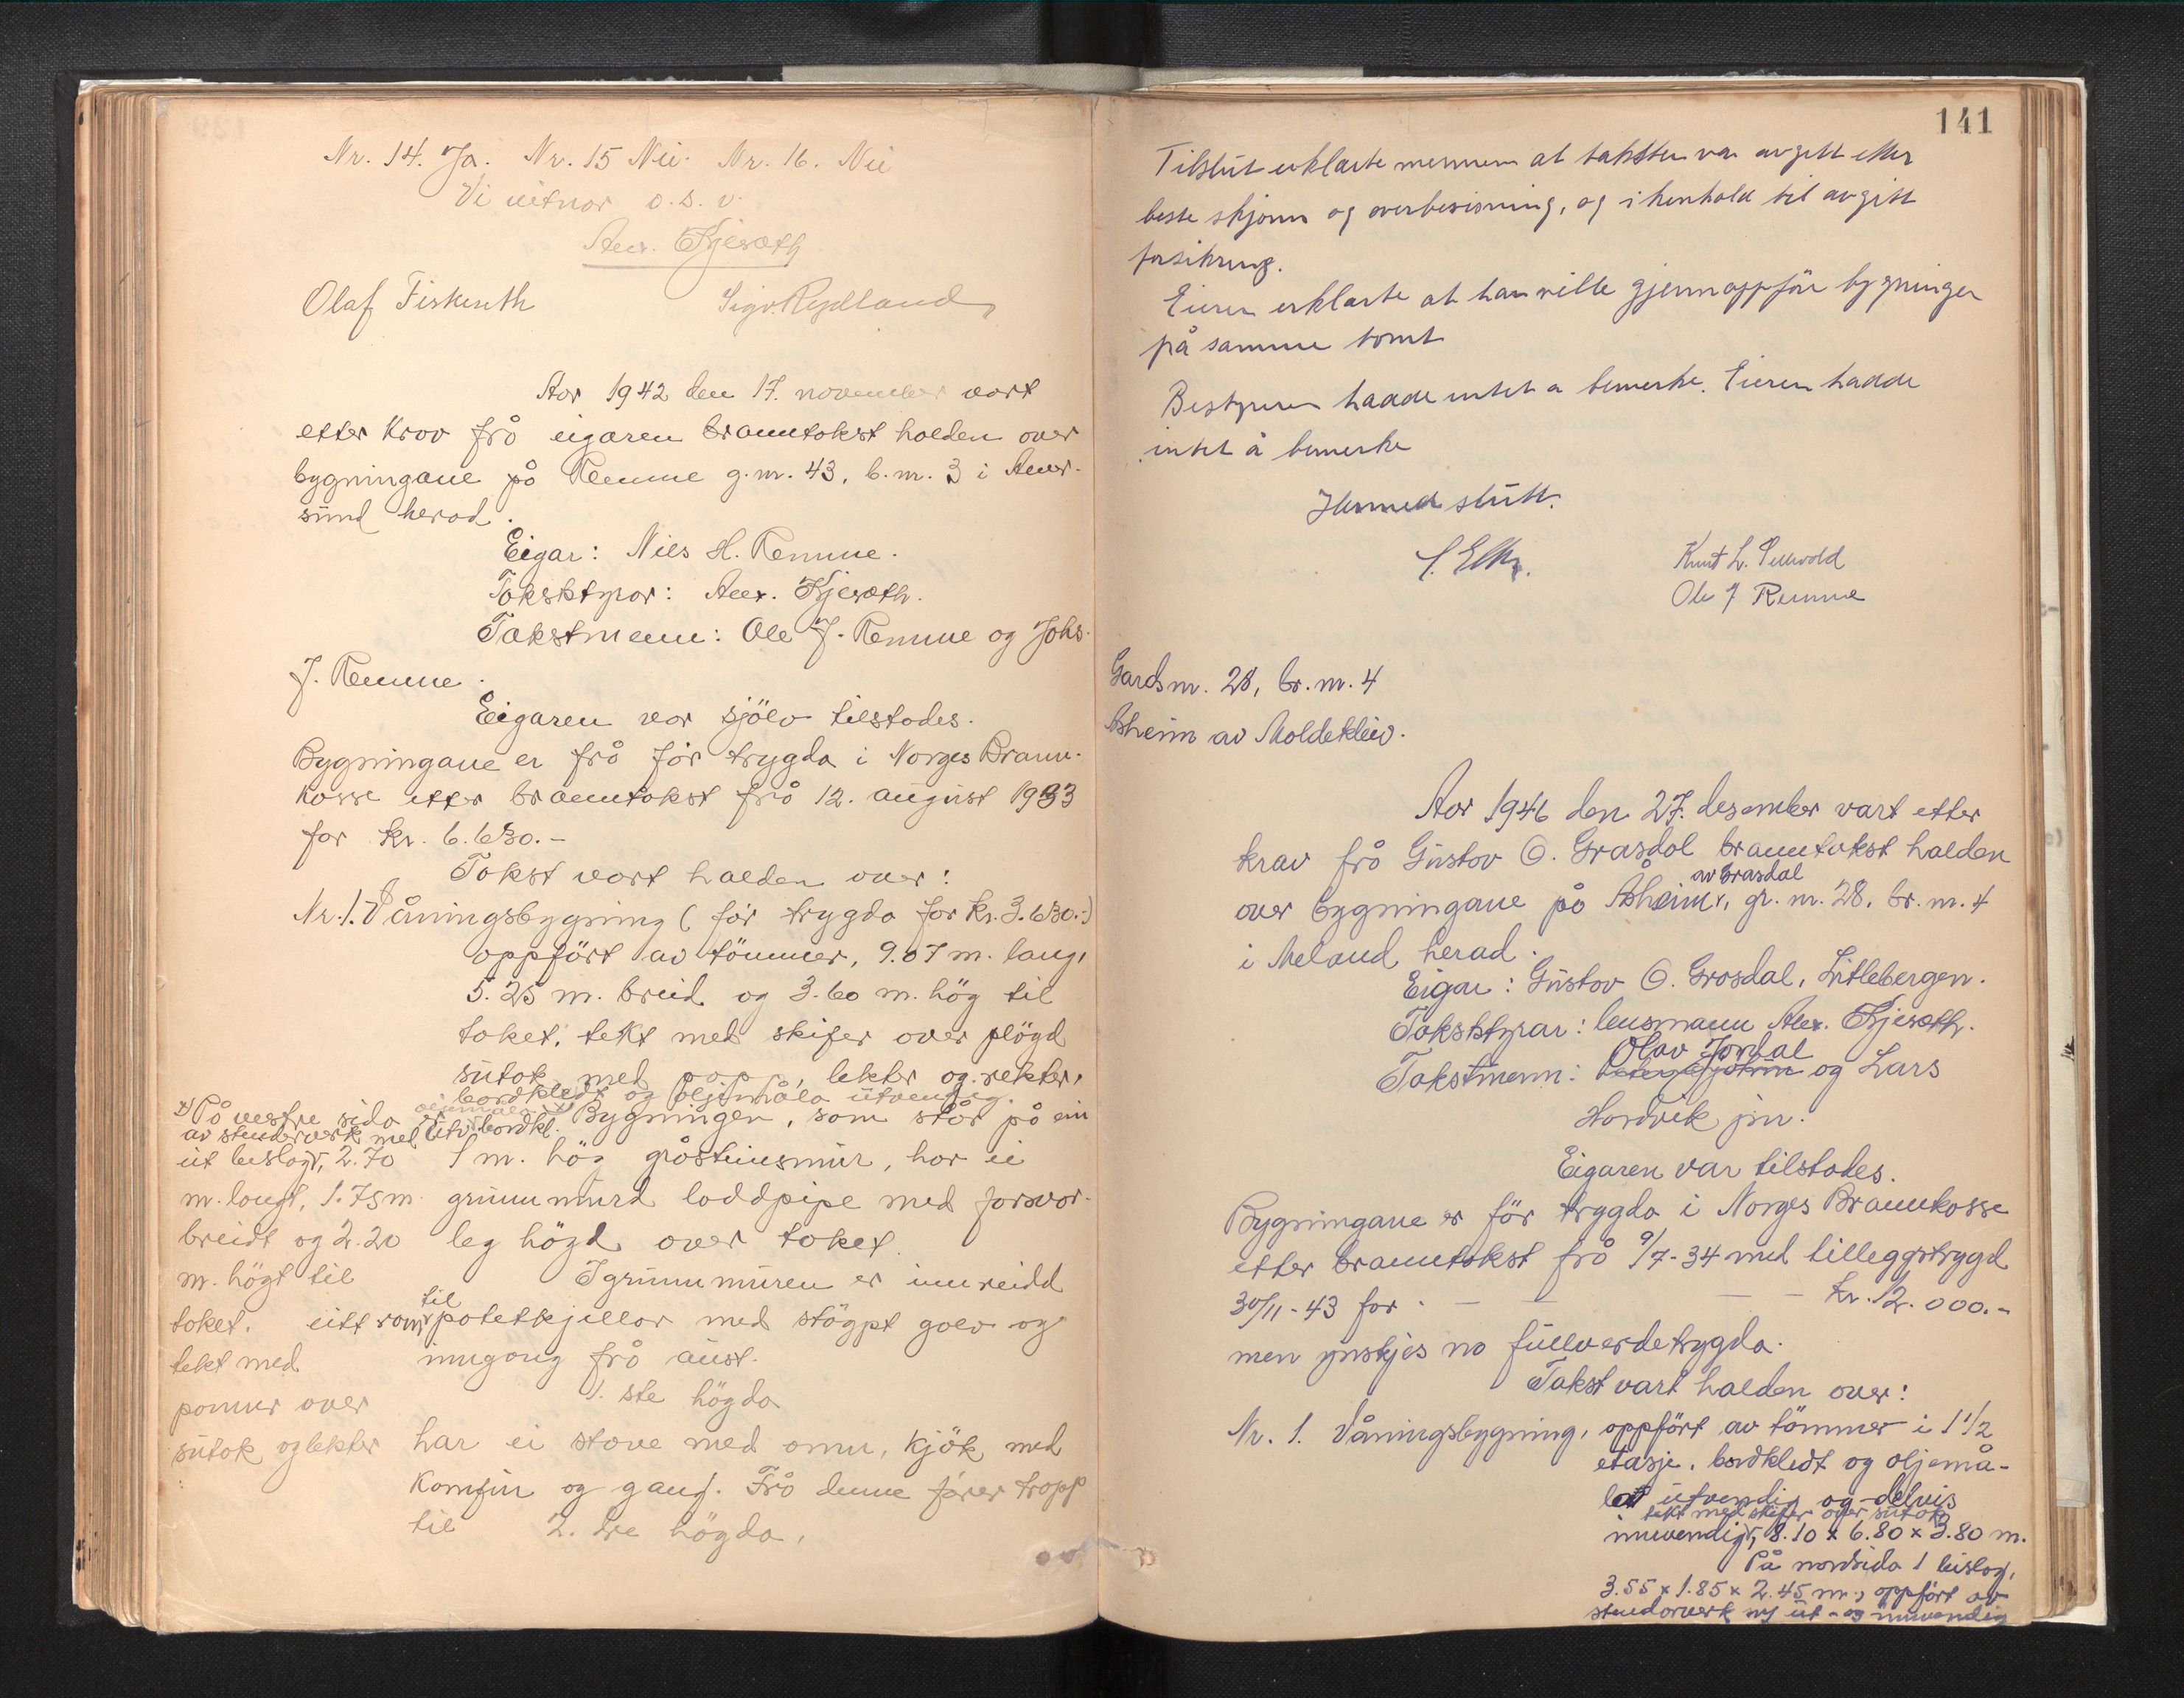 Nr. 14. Ja. Nr. 15 Nei. Nr. 16. Nei
Vi vitnar o.s.v.
Alex. Kjeseth
Olaf Fiskeseth Sigv. Rydland
Aar 1942 den 17. november vart
etter krav frå eigaren branntakst halden over
bygningane på Remme g.nr. 43, b.nr. 3 i Alver-
sund herad.
Eigar: Nils H. Remme.
Takststyrar: Alex. Kjeseth.
Takstmenn: Ole J. Remme og Johs.
J. Remme.
Eigaren var sjölv tilstades.
Bygningane er frå för trygda i Norges Brann-
kasse etter branntakst frå 12. august 1933
for kr. 6.630.-
Takst vart halden over:
Nr. 1. Våningsbygning (för trygda for kr. 3.630.-)
oppfört av tömmer, 9.07 m. lang,
5.25 m. breid og 3.60 m. hög til
taket, tekt med skifer over plögd
sutak med papp, lekter og rekter,
bordkledt og oljemåla utvendig.
x) På vestre sida er Bygningen, som står på ein
av stenderverk med utv. bordkl.
eit beslag, 2.70 1 m. hög gråsteinsmur, har ei
m. langt, 1.75 m. grunnmurd loddpipe med forsvar-
breidt og 2.20 leg högd over taket.
m. högt til I grunnmuren er innreidd
taket. eitt rom til potetkjellar med stöypt golv og
tekt med inngang frå aust.
1. ste högda
panner over
sutak og lekter har ei stove med omn, kjök med
komfur og gang. Frå denne förer trapp
til 2. dre högda,
141
Tilslut erklærte mennene at taksten var avgitt etter
beste skjønn og overbevisning, og i henhold til avgitt
forsikring.
Eieren erklærte at han ville gjennoppføre bygningen
på samme tomt
Bestyreren hadde intet a bemerke. Eieren hadde
intet å bemerke
Hermed slutt.
Knut L.
Ole J Remme
Gardsnr. 28, br.nr. 4
Åsheim av Moldekleiv.
Aar 1946 den 27. desember vart etter
krav frå Gustav O. Grasdal branntakst halden
over bygningane på Åsheim av Grasdal, gr.nr. 28, br.nr. 4
i Meland herad.
Eigar: Gustav O. Grasdal, Litlebergen.
Takststyrar: lensmann Alex. Kjeseth.
Takstmenn: Olav Jordal og Lars
Hordvik jnr.
Eigaren var tilstades.
Bygningane er för trygda i Norges Brannkasse
etter branntakst frå 9/7-34 med tilleggstrygd
30/11-43 for - — — — kr. 12.000.-
men ynskjes no fullverdetrygda.
Takst vart halden over:
Nr. 1. Våningsbygning, oppfört av tömmer i 1 1/2
etasje, bordkledt og oljemå-
lat utvendig og delvis
tekt med skifer over sutak
innvendig, 8.10 x 6.80 x 3.80 m.
På nordsida 1 beislag,
3.55 x 1.85 x 2.45 m., oppfört av
stendarverk ut- og innvendig